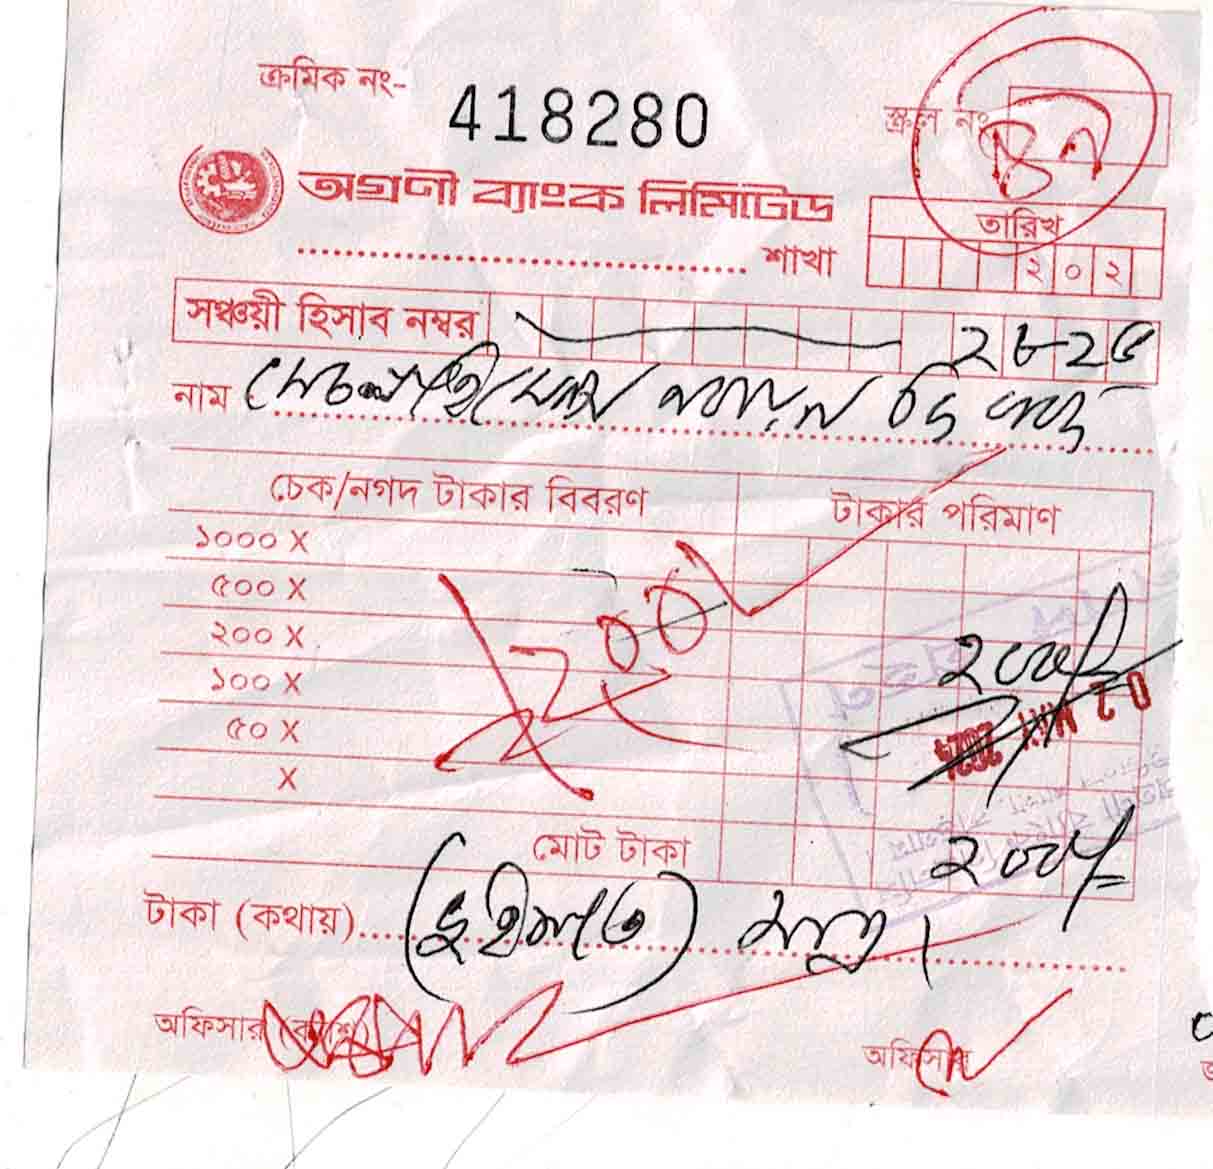 ক্রমিক নং- 418280
স্ক্রল নং
অগ্রণী ব্যাংক লিমিটেড
তারিখ
শাখা
২ ০ ২
সঞ্চয়ী হিসাব নম্বর ২৮২৫
নাম
চেক/নগদ টাকার বিবরণ টাকার পরিমাণ
১০০০ X
৫০০ X
২০০ X
১০০ X
৫০ X
X
২০০/=
মোট টাকা ২০০/=
টাকা (কথায়) (দুইশত) মাত্র।
অফিসার (ক্যাশ) অফিসার